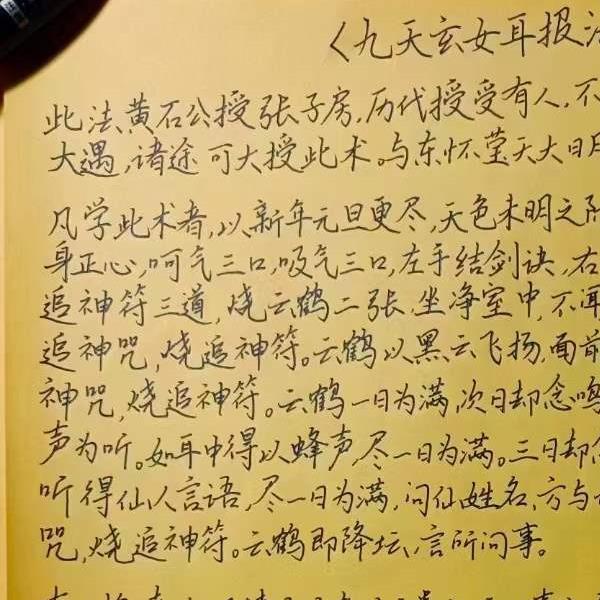 《九天玄女耳报法
此法黄石公授张子房,历代授受有人,不
大遇,诸途可大授此术。与东怀莹天大日月
凡学此术者,以新年元旦更尽,天色未明之际
身正心,呵气三口,吸气三口,左手结剑诀,右
追神符三道,烧云鹤二张,坐净室中,不闻
追神咒,烧追神符。云鹤以黑云飞扬,面前
神咒,烧追神符。云鹤一日为满,次日却念鸣
声为听。如耳中得以蜂声,尽一日为满。三日却
听得仙人言语,尽一日为满,问仙姓名,方与
咒,烧追神符。云鹤即降坛,言所问事。